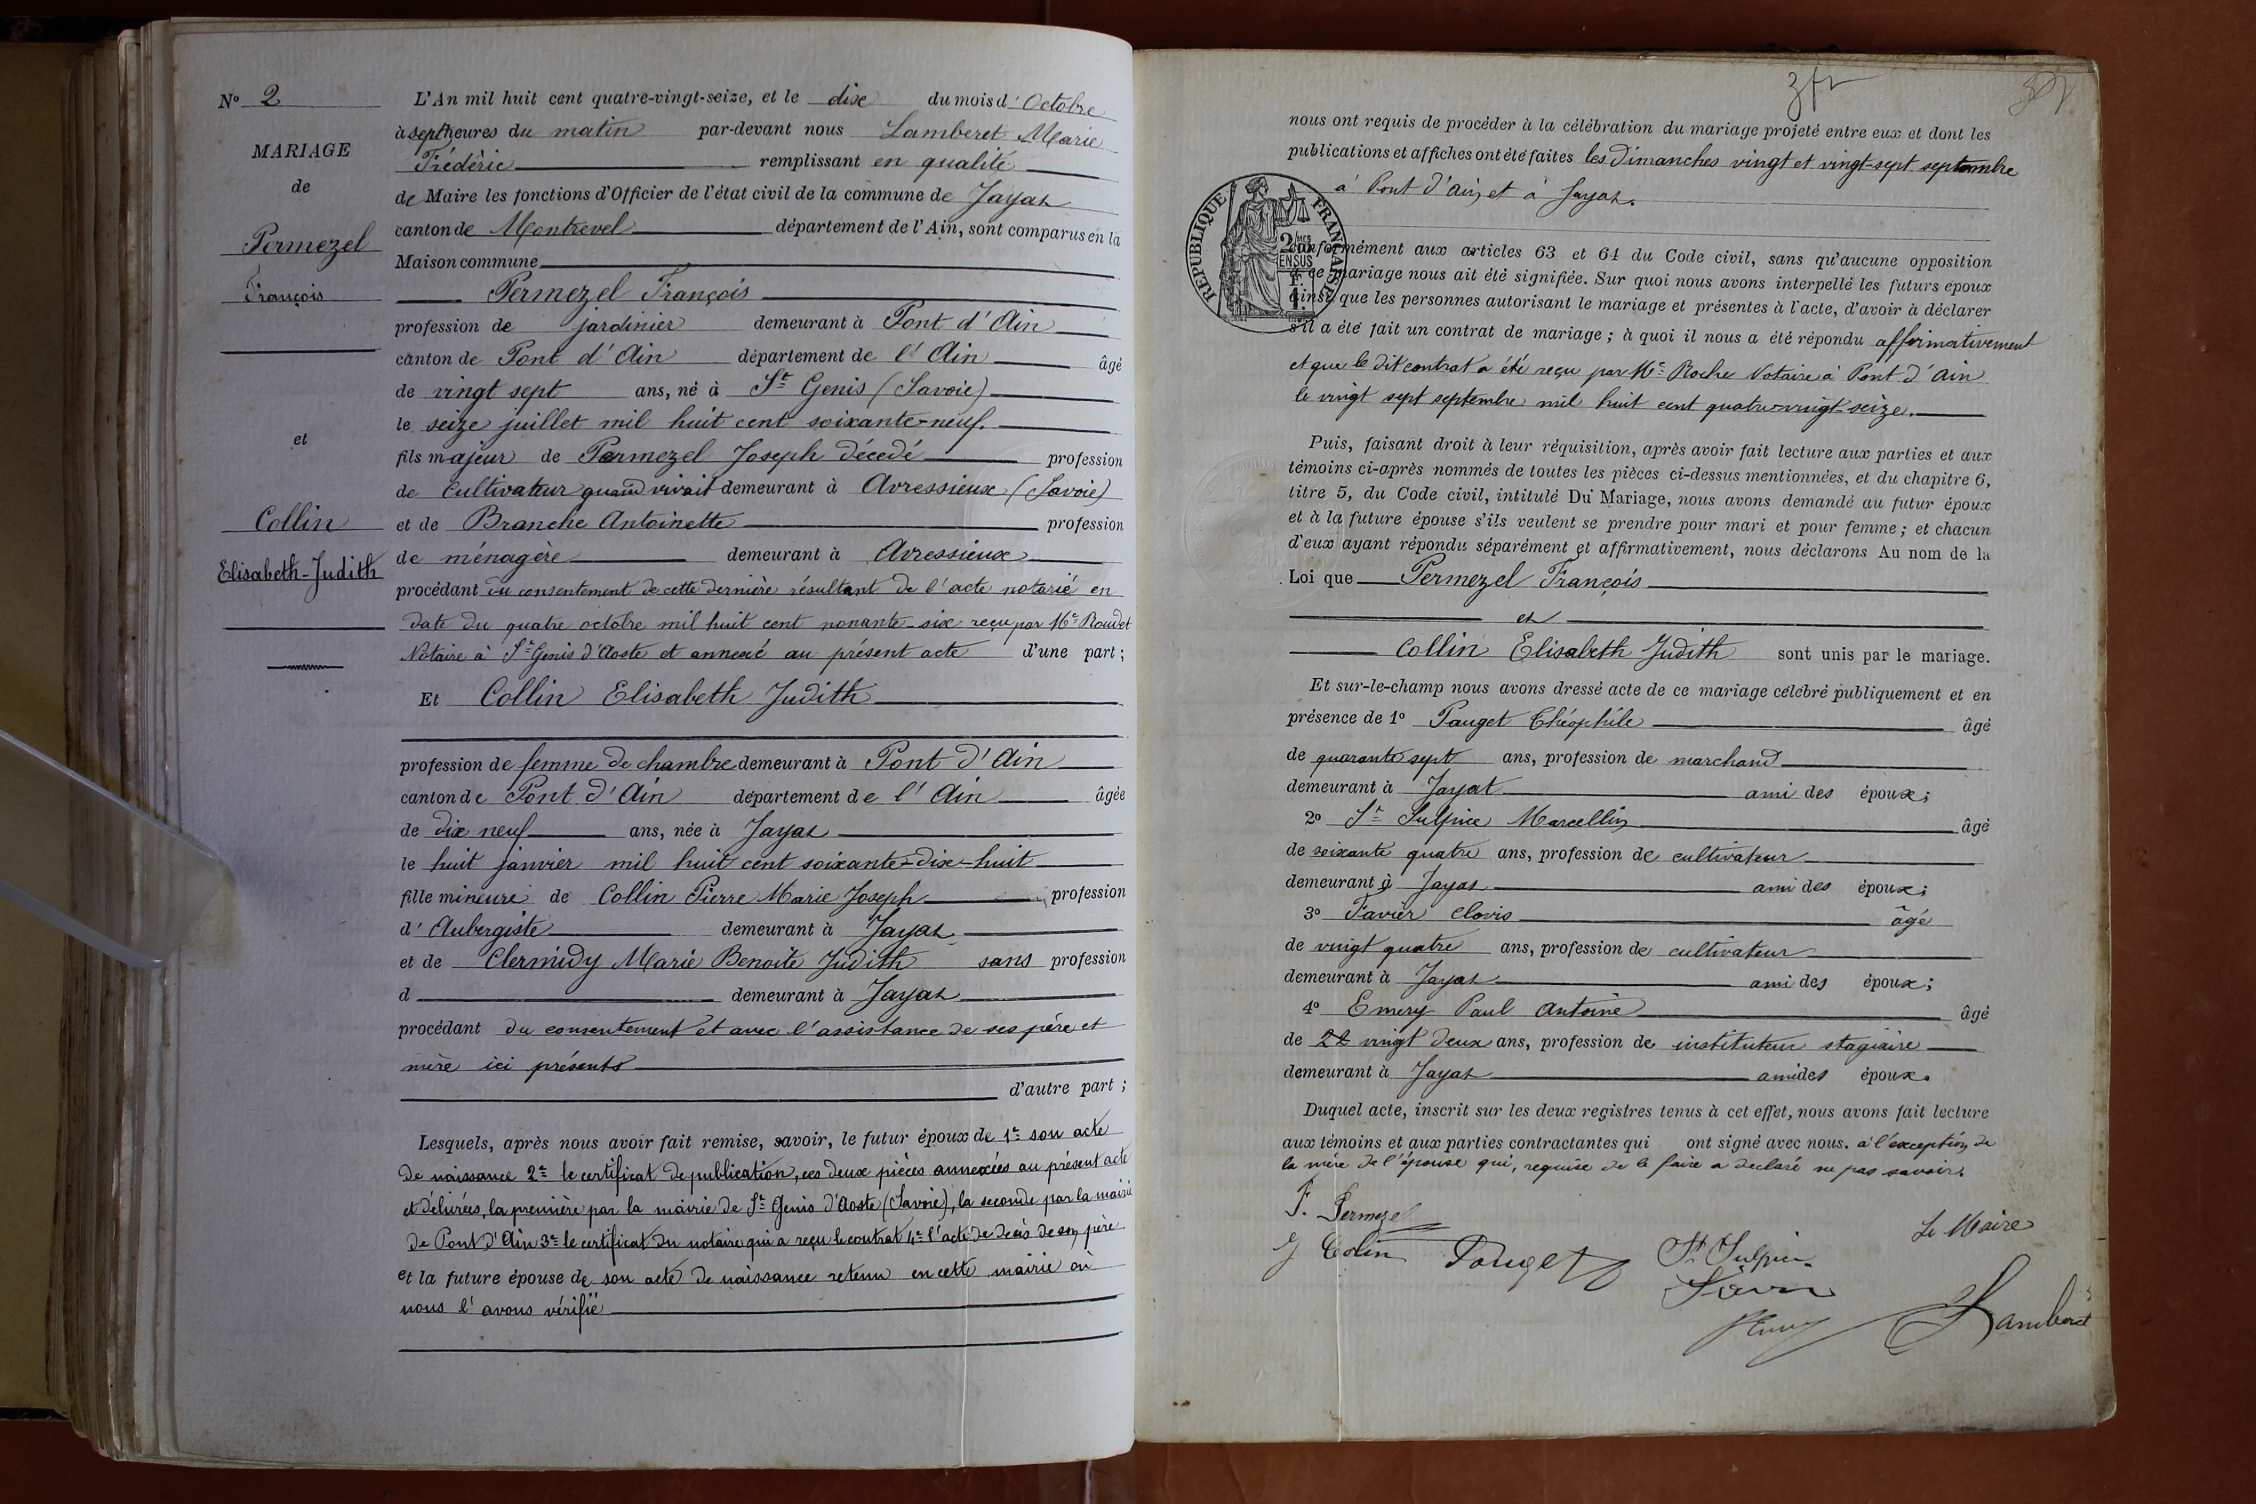 N° 2
MARIAGE
de
Permezel
François
et
Collin
Elisabeth-Judith
L'An mil huit cent quatre-vingt-seize, et le dix du mois d'Octobre
à sept heures du matin par-devant nous Lamberet Marie
Frédéric remplissant en qualité
de Maire les fonctions d'Officier de l'état civil de la commune de Jayat
canton de Montrevel département de l'Ain, sont comparus en la
Maison commune
Permezel François
profession de jardinier demeurant à Pont d'Ain
canton de Pont d'Ain département de l'Ain âgé
de vingt sept ans, né à St Genis (Savoie)
le seize juillet mil huit cent soixante-neuf.
fils majeur de Permezel Joseph décédé profession
de cultivateur quand vivait demeurant à Avressieux (Savoie)
et de Branche Antoinette profession
de ménagère demeurant à Avressieux
procédant du consentement de cette dernière résultant de l'acte notarié en
date du quatre octobre mil huit cent nonante-six reçu par Me Roudet
Notaire à St Genis d'Aoste et annexé au présent acte d'une part;
Et Collin Elisabeth Judith
profession de femme de chambre demeurant à Pont d'Ain
canton de Pont d'Ain département de l'Ain âgée
de dix neuf ans, née à Jayat
le huit janvier mil huit cent soixante-dix-huit
fille mineure de Collin Pierre Marie Joseph profession
d'Aubergiste demeurant à Jayat
et de Clermidy Marie Benoite Judith sans profession
d demeurant à Jayat
procédant du consentement et avec l'assistance de ses père et
mère ici présents
d'autre part;
Lesquels, après nous avoir fait remise, savoir, le futur époux de 1° son acte
de naissance 2° le certificat de publication, ces deux pièces annexées au présent acte
et délivrées, la première par la mairie de St Genis d'Aoste (Savoie), la seconde par la mairie
de Pont d'Ain 3° le certificat du notaire qui a reçu le contrat 4° l'acte de décès de son père
et la future épouse de son acte de naissance retenu en cette mairie où
nous l'avons vérifié
nous ont requis de procéder à la célébration du mariage projeté entre eux et dont les
publications et affiches ont été faites les Dimanches vingt et vingt-sept septembre
à Pont d'Ain, et à Jayat.
RÉPUBLIQUE FRANÇAISE
2 mes
EN SUS
1 F.
conformément aux articles 63 et 64 du Code civil, sans qu'aucune opposition
à ce mariage nous ait été signifiée. Sur quoi nous avons interpellé les futurs époux
ainsi que les personnes autorisant le mariage et présentes à l'acte, d'avoir à déclarer
s'il a été fait un contrat de mariage; à quoi il nous a été répondu affirmativement
et que le dit contrat a été reçu par Me Roche Notaire à Pont d'Ain
le vingt sept septembre mil huit cent quatre-vingt-seize.
Puis, faisant droit à leur réquisition, après avoir fait lecture aux parties et aux
témoins ci-après nommés de toutes les pièces ci-dessus mentionnées, et du chapitre 6,
titre 5, du Code civil, intitulé Du Mariage, nous avons demandé au futur époux
et à la future épouse s'ils veulent se prendre pour mari et pour femme; et chacun
d'eux ayant répondu séparément et affirmativement, nous déclarons Au nom de la
Loi que Permezel François
et
Collin Elisabeth Judith sont unis par le mariage.
Et sur-le-champ nous avons dressé acte de ce mariage célébré publiquement et en
présence de 1° Pauget Théophile âgé
de quarante sept ans, profession de marchand
demeurant à Jayat ami des époux;
2° St Sulpice Marcellin âgé
de soixante quatre ans, profession de cultivateur
demeurant à Jayat ami des époux;
3° Favier Clovis âgé
de vingt quatre ans, profession de cultivateur
demeurant à Jayat ami des époux;
4° Emery Paul Antoine âgé
de 22 vingt deux ans, profession de instituteur stagiaire
demeurant à Jayat ami des époux.
Duquel acte, inscrit sur les deux registres tenus à cet effet, nous avons fait lecture
aux témoins et aux parties contractantes qui ont signé avec nous. à l'exception de
la mère de l'épouse qui, requise de le faire a déclaré ne pas savoir.
F. Permezel
Le Maire
J Colin Pauget St Sulpice
Lamberet